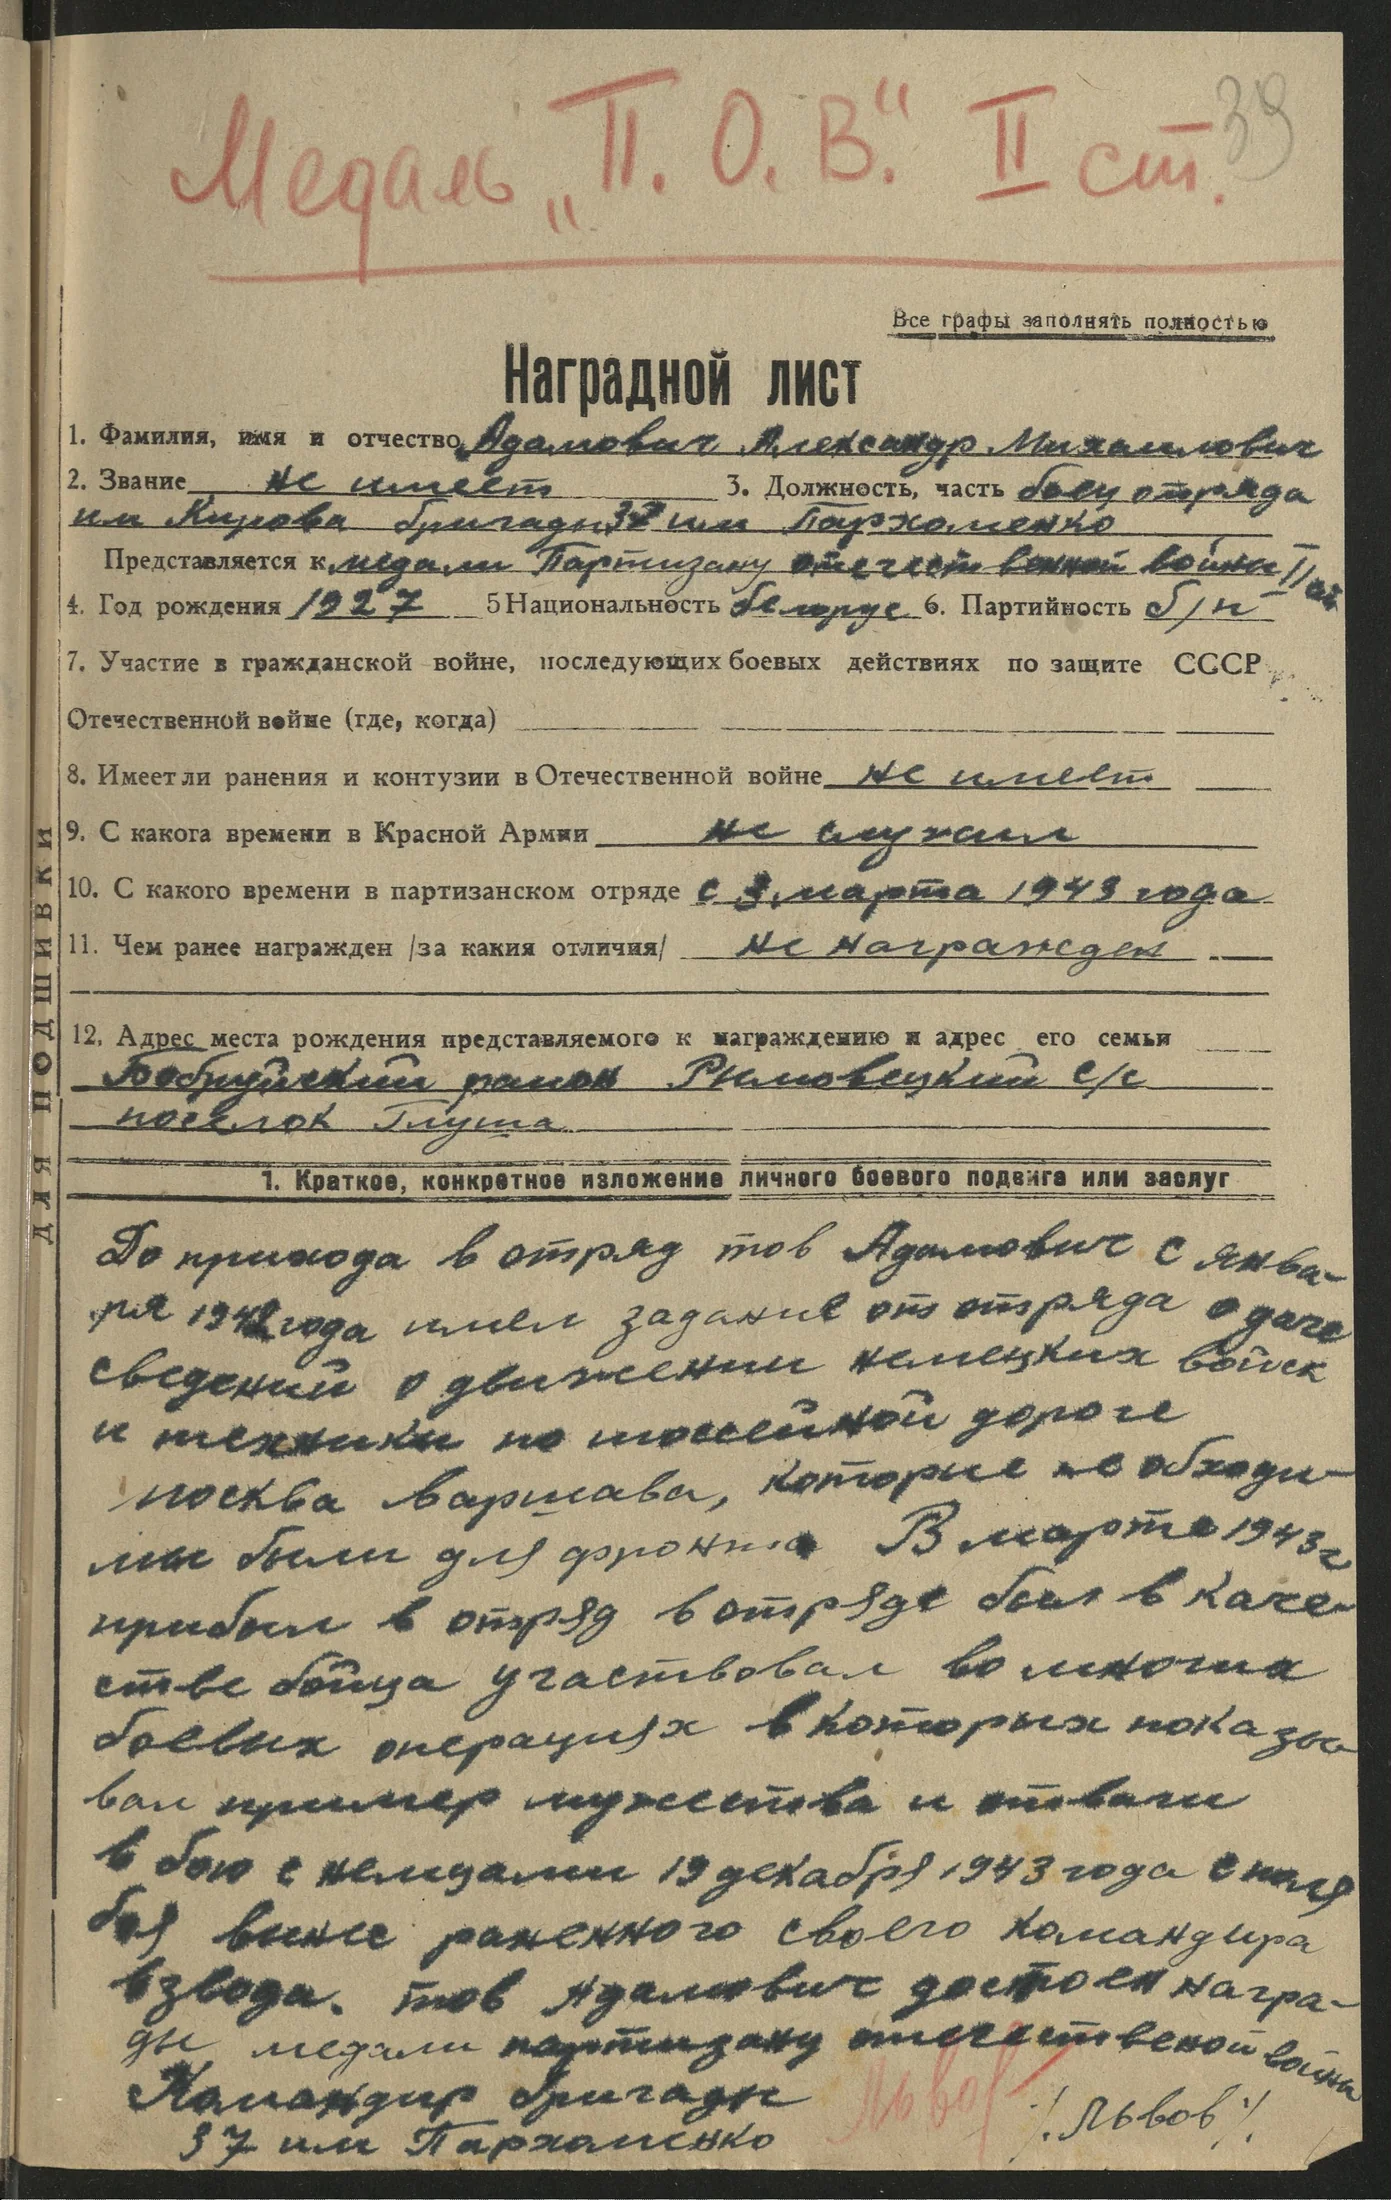 39
Медаль „П. О. В." II ст.
Все графы заполнять полностью
Наградной лист
1. Фамилия, имя и отчество Адамович Александр Михаилович
2. Звание не имеет 3. Должность, часть боец отряда
им Кирова бригады 37 им Пархоменко
Представляется к медали Партизану отечественной войны II ой
4. Год рождения 1927 5 Национальность белорус 6. Партийность б/п
7. Участие в гражданской войне, последующих боевых действиях по защите СССР
Отечественной войне (где, когда)
8. Имеет ли ранения и контузии в Отечественной войне не имеет
9. С какога времени в Красной Армии не служил
10. С какого времени в партизанском отряде с 3 марта 1943 года
11. Чем ранее награжден /за какия отличия/ не награжден
12. Адрес места рождения представляемого к награждению и адрес его семьи
Бобруйский район Римовецкий с/с
поселок Глуша
ДЛЯ ПОДШИВКИ
1. Краткое, конкретное изложение личного боевого подвига или заслуг
До прихода в отряд тов Адамович с янва-
ря 1942 года имел задание от отряда о даче
сведений о движении немецких войск
и техники по шоссейной дороге
москва варшава, которые необходи-
мы были для фронта В марте 1943 г
прибыл в отряд в отряде был в каче-
стве бойца участвовал во многих
боевых операциях в которых показы-
вал пример мужества и отваги
в бою с немцами 19 декабря 1943 года с поля
боя вынес раненного своего командира
взвода. тов Адамович достоен награ-
ды медали партизану отечественой войны
Командир бригады
37 им Пархоменко Львов /Львов/